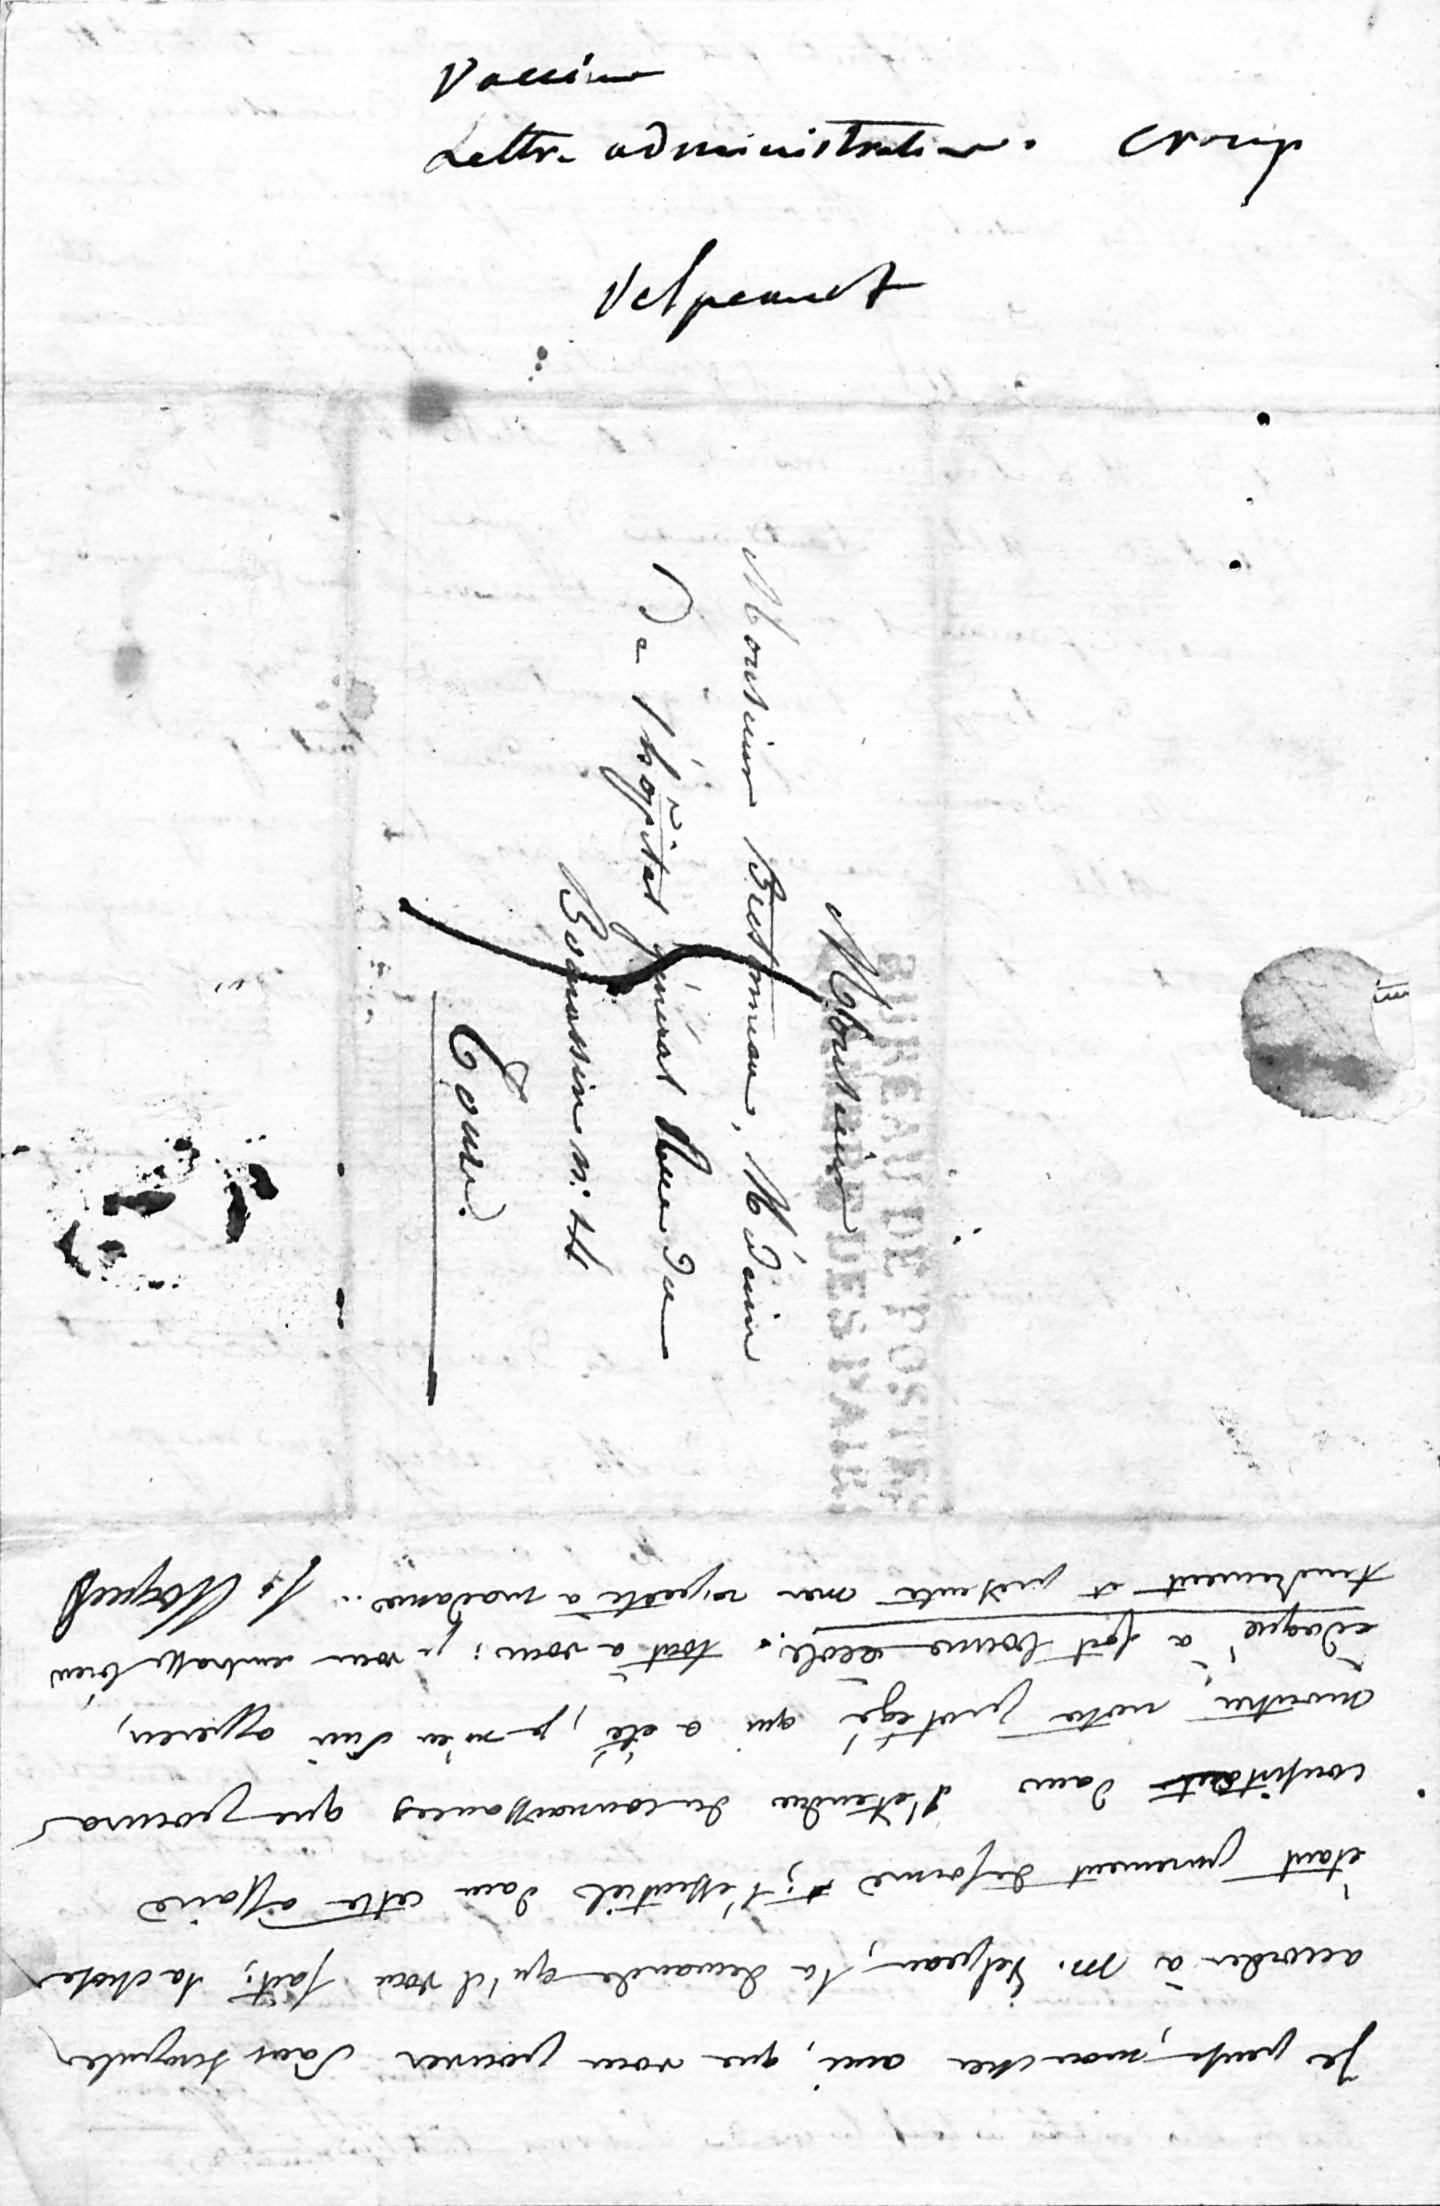 Vaccine
Lettre administrative. croup
Velpeau
Monsieur
Monsieur Bretonneau, Médecin
De l'hôpital général Rue du
Bonassin n:
Tours.
BUREAU DE POSTE
DES PAIRS
je pense, mon cher ami, que vous pouvez sans scrupule
accorder à M. Velpeau, la demande qu'il vous fait; la chose
étant purement de forme; l'essentiel dans cette affaire
consistant dans l'étendue des connaissances que pourra
montrer notre protégé qui a été, je m'en suis apperçu,
à fort bonne école. tout à vous; je vous embrasse bien
tendrement et présente mes respects à madame.. J.